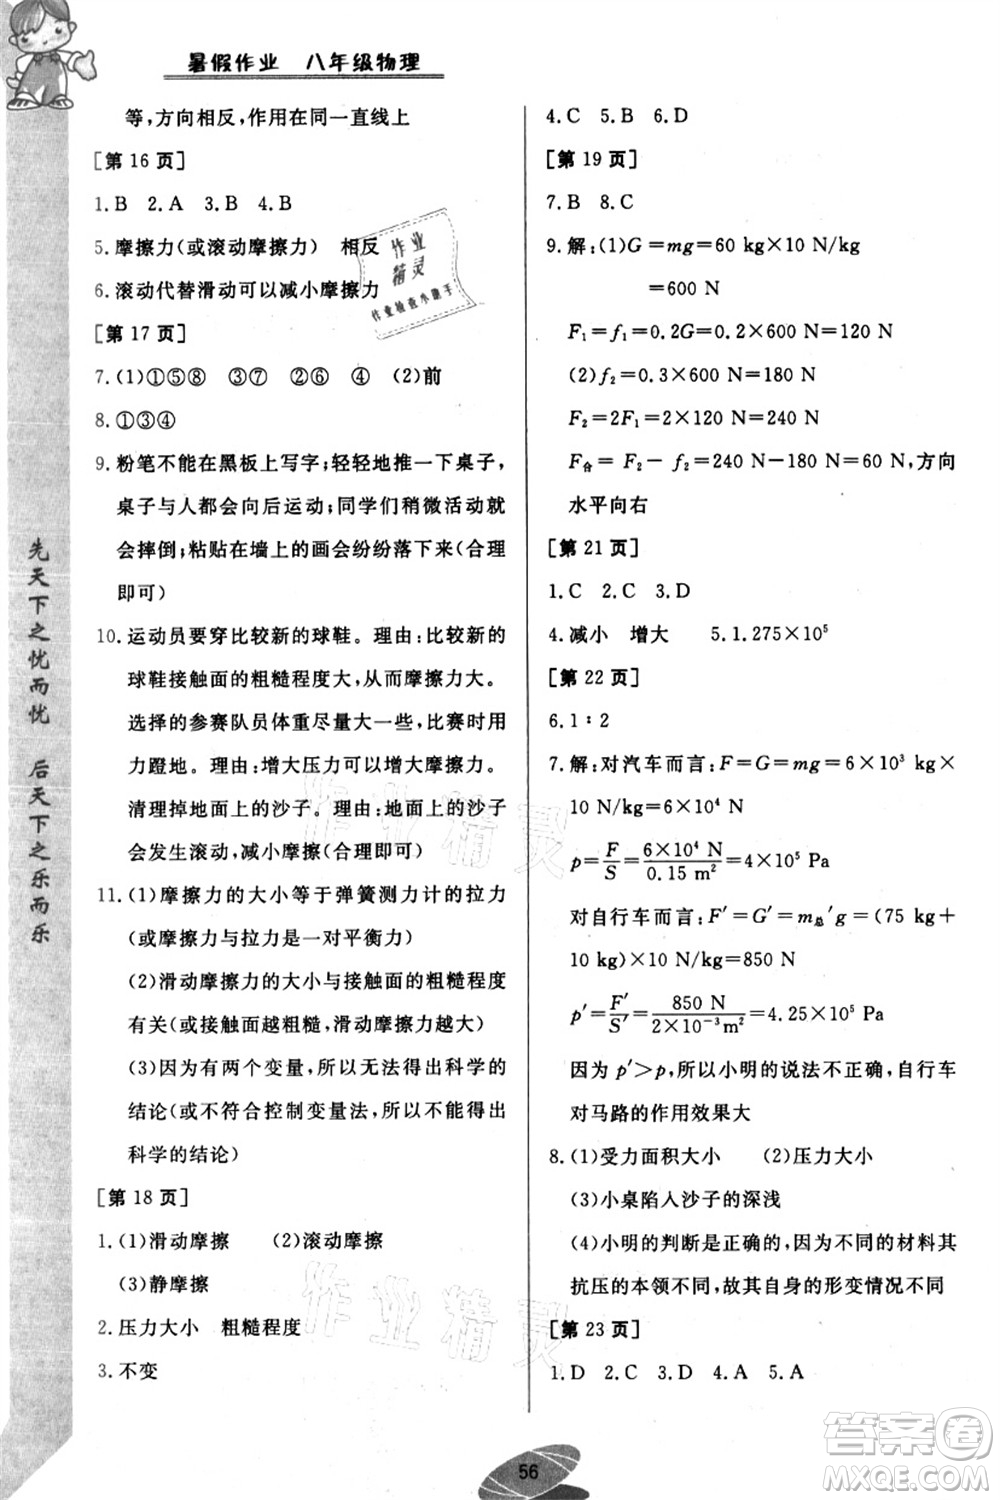 暑假作业 八年级物理
等,方向相反,作用在同一直线上
[第 16 页]
1.B 2.A 3.B 4.B
5.摩擦力(或滚动摩擦力) 相反
6.滚动代替滑动可以减小摩擦力
[第 17 页]
7.(1)①⑤⑧ ③⑦ ②⑥ ④ (2)前
8.①③④
9.粉笔不能在黑板上写字;轻轻地推一下桌子,
桌子与人都会向后运动;同学们稍微活动就
会摔倒;粘贴在墙上的画会纷纷落下来(合理
即可)
10.运动员要穿比较新的球鞋。理由:比较新的
球鞋接触面的粗糙程度大,从而摩擦力大。
选择的参赛队员体重尽量大一些,比赛时用
力蹬地。理由:增大压力可以增大摩擦力。
清理掉地面上的沙子。理由:地面上的沙子
会发生滚动,减小摩擦(合理即可)
11.(1)摩擦力的大小等于弹簧测力计的拉力
(或摩擦力与拉力是一对平衡力)
(2)滑动摩擦力的大小与接触面的粗糙程度
有关(或接触面越粗糙,滑动摩擦力越大)
(3)因为有两个变量,所以无法得出科学的
结论(或不符合控制变量法,所以不能得出
科学的结论)
[第 18 页]
1.(1)滑动摩擦 (2)滚动摩擦
(3)静摩擦
2.压力大小 粗糙程度
3.不变
4.C 5.B 6.D
[第 19 页]
7.B 8.C
9.解:(1)G=mg=60 kg×10 N/kg
=600 N
F₁=f₁=0.2G=0.2×600 N=120 N
(2)f₂=0.3×600 N=180 N
F₂=2F₁=2×120 N=240 N
F合=F₂-f₂=240 N-180 N=60 N,方向
水平向右
[第 21 页]
1.C 2.C 3.D
4.减小 增大 5.1.275×10⁵
[第 22 页]
6.1∶2
7.解:对汽车而言:F=G=mg=6×10³ kg×
10 N/kg=6×10⁴ N
p=F/S=6×10⁴ N/0.15 m²=4×10⁵ Pa
对自行车而言:F′=G′=m总′g=(75 kg+
10 kg)×10 N/kg=850 N
p′=F′/S′=850 N/2×10⁻³m²=4.25×10⁵ Pa
因为 p′>p,所以小明的说法不正确,自行车
对马路的作用效果大
8.(1)受力面积大小 (2)压力大小
(3)小桌陷入沙子的深浅
(4)小明的判断是正确的,因为不同的材料其
抗压的本领不同,故其自身的形变情况不同
[第 23 页]
1.D 2.C 3.D 4.A 5.A
先天下之忧而忧 后天下之乐而乐
56
作业
精灵
作业检查小助手
作业精灵
作业精灵
答案圈
MXQE.COM